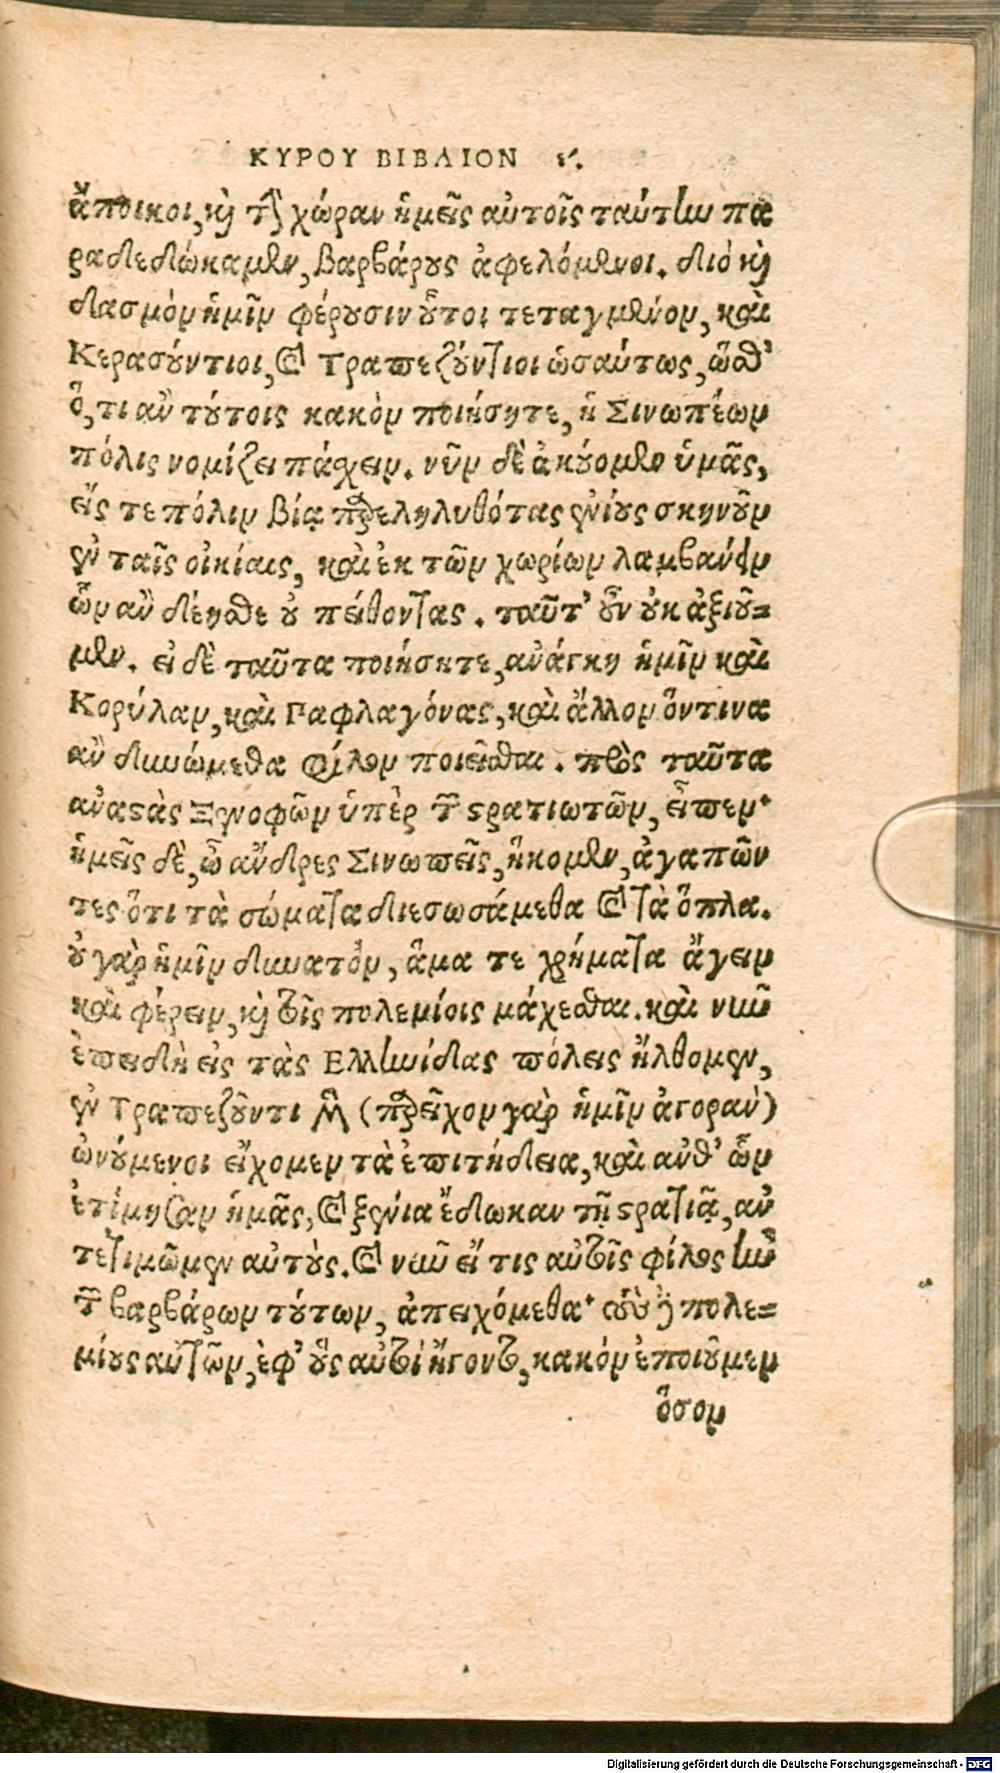 ΚΥΡΟΥ ΒΙΒΛΙΟΝ ε´.
ἄποικοι, καὶ τὴν χώραν ἡμεῖς αὐτοῖς ταύτην πα
ραδεδώκαμεν, βαρβάρους ἀφελόμενοι. διὸ καὶ
δασμὸν ἡμῖν φέρουσιν οὗτοι τεταγμένον, καὶ
Κερασούντιοι, καὶ Τραπεζούντιοι ὡσαύτως, ὥσθ'
ὅ,τι ἂν τούτοις κακὸν ποιήσητε, ἡ Σινωπέων
πόλις νομίζει πάσχειν. νῦν δὲ ἀκούομεν ὑμᾶς,
εἴς τε πόλιν βίᾳ παρεληλυθότας ἐνίους σκηνοῦν
ἐν ταῖς οἰκίαις, καὶ ἐκ τῶν χωρίων λαμβάνειν
ὧν ἂν δέησθε οὐ πείθοντας. ταῦτ' οὖν οὐκ ἀξιοῦ=
μεν. εἰ δὲ ταῦτα ποιήσητε, ἀνάγκη ἡμῖν καὶ
Κορύλαν, καὶ Παφλαγόνας, καὶ ἄλλον ὅντινα
ἂν δυνώμεθα φίλον ποιεῖσθαι. πρὸς ταῦτα
ἀναστὰς Ξενοφῶν ὑπὲρ τῶν στρατιωτῶν, εἶπεν·
ἡμεῖς δὲ, ὦ ἄνδρες Σινωπεῖς, ἥκομεν, ἀγαπῶν
τες ὅτι τὰ σώματα διεσωσάμεθα καὶ τὰ ὅπλα.
οὐ γὰρ ἡμῖν δυνατὸν, ἅμα τε χρήματα ἄγειν
καὶ φέρειν, καὶ τοῖς πολεμίοις μάχεσθαι. καὶ νῦν
ἐπειδὴ εἰς τὰς Ελληνίδας πόλεις ἤλθομεν,
ἐν Τραπεζοῦντι μὲν (παρεῖχον γὰρ ἡμῖν ἀγορὰν)
ὠνούμενοι εἴχομεν τὰ ἐπιτήδεια, καὶ ἀνθ' ὧν
ἐτίμησαν ἡμᾶς, καὶ ξένια ἔδωκαν τῇ στρατιᾷ, ἀν
τετιμῶμεν αὐτούς. καὶ νῦν εἴ τις αὐτοῖς φίλος ἦν
τῶν βαρβάρων τούτων, ἀπειχόμεθα· τοὺς δὲ πολε=
μίους αὐτῶν, ἐφ' οὓς αὐτοὶ ἤγοντο, κακὸν ἐποιοῦμεν
ὅσον
Digitalisierung gefördert durch die Deutsche Forschungsgemeinschaft - DFG